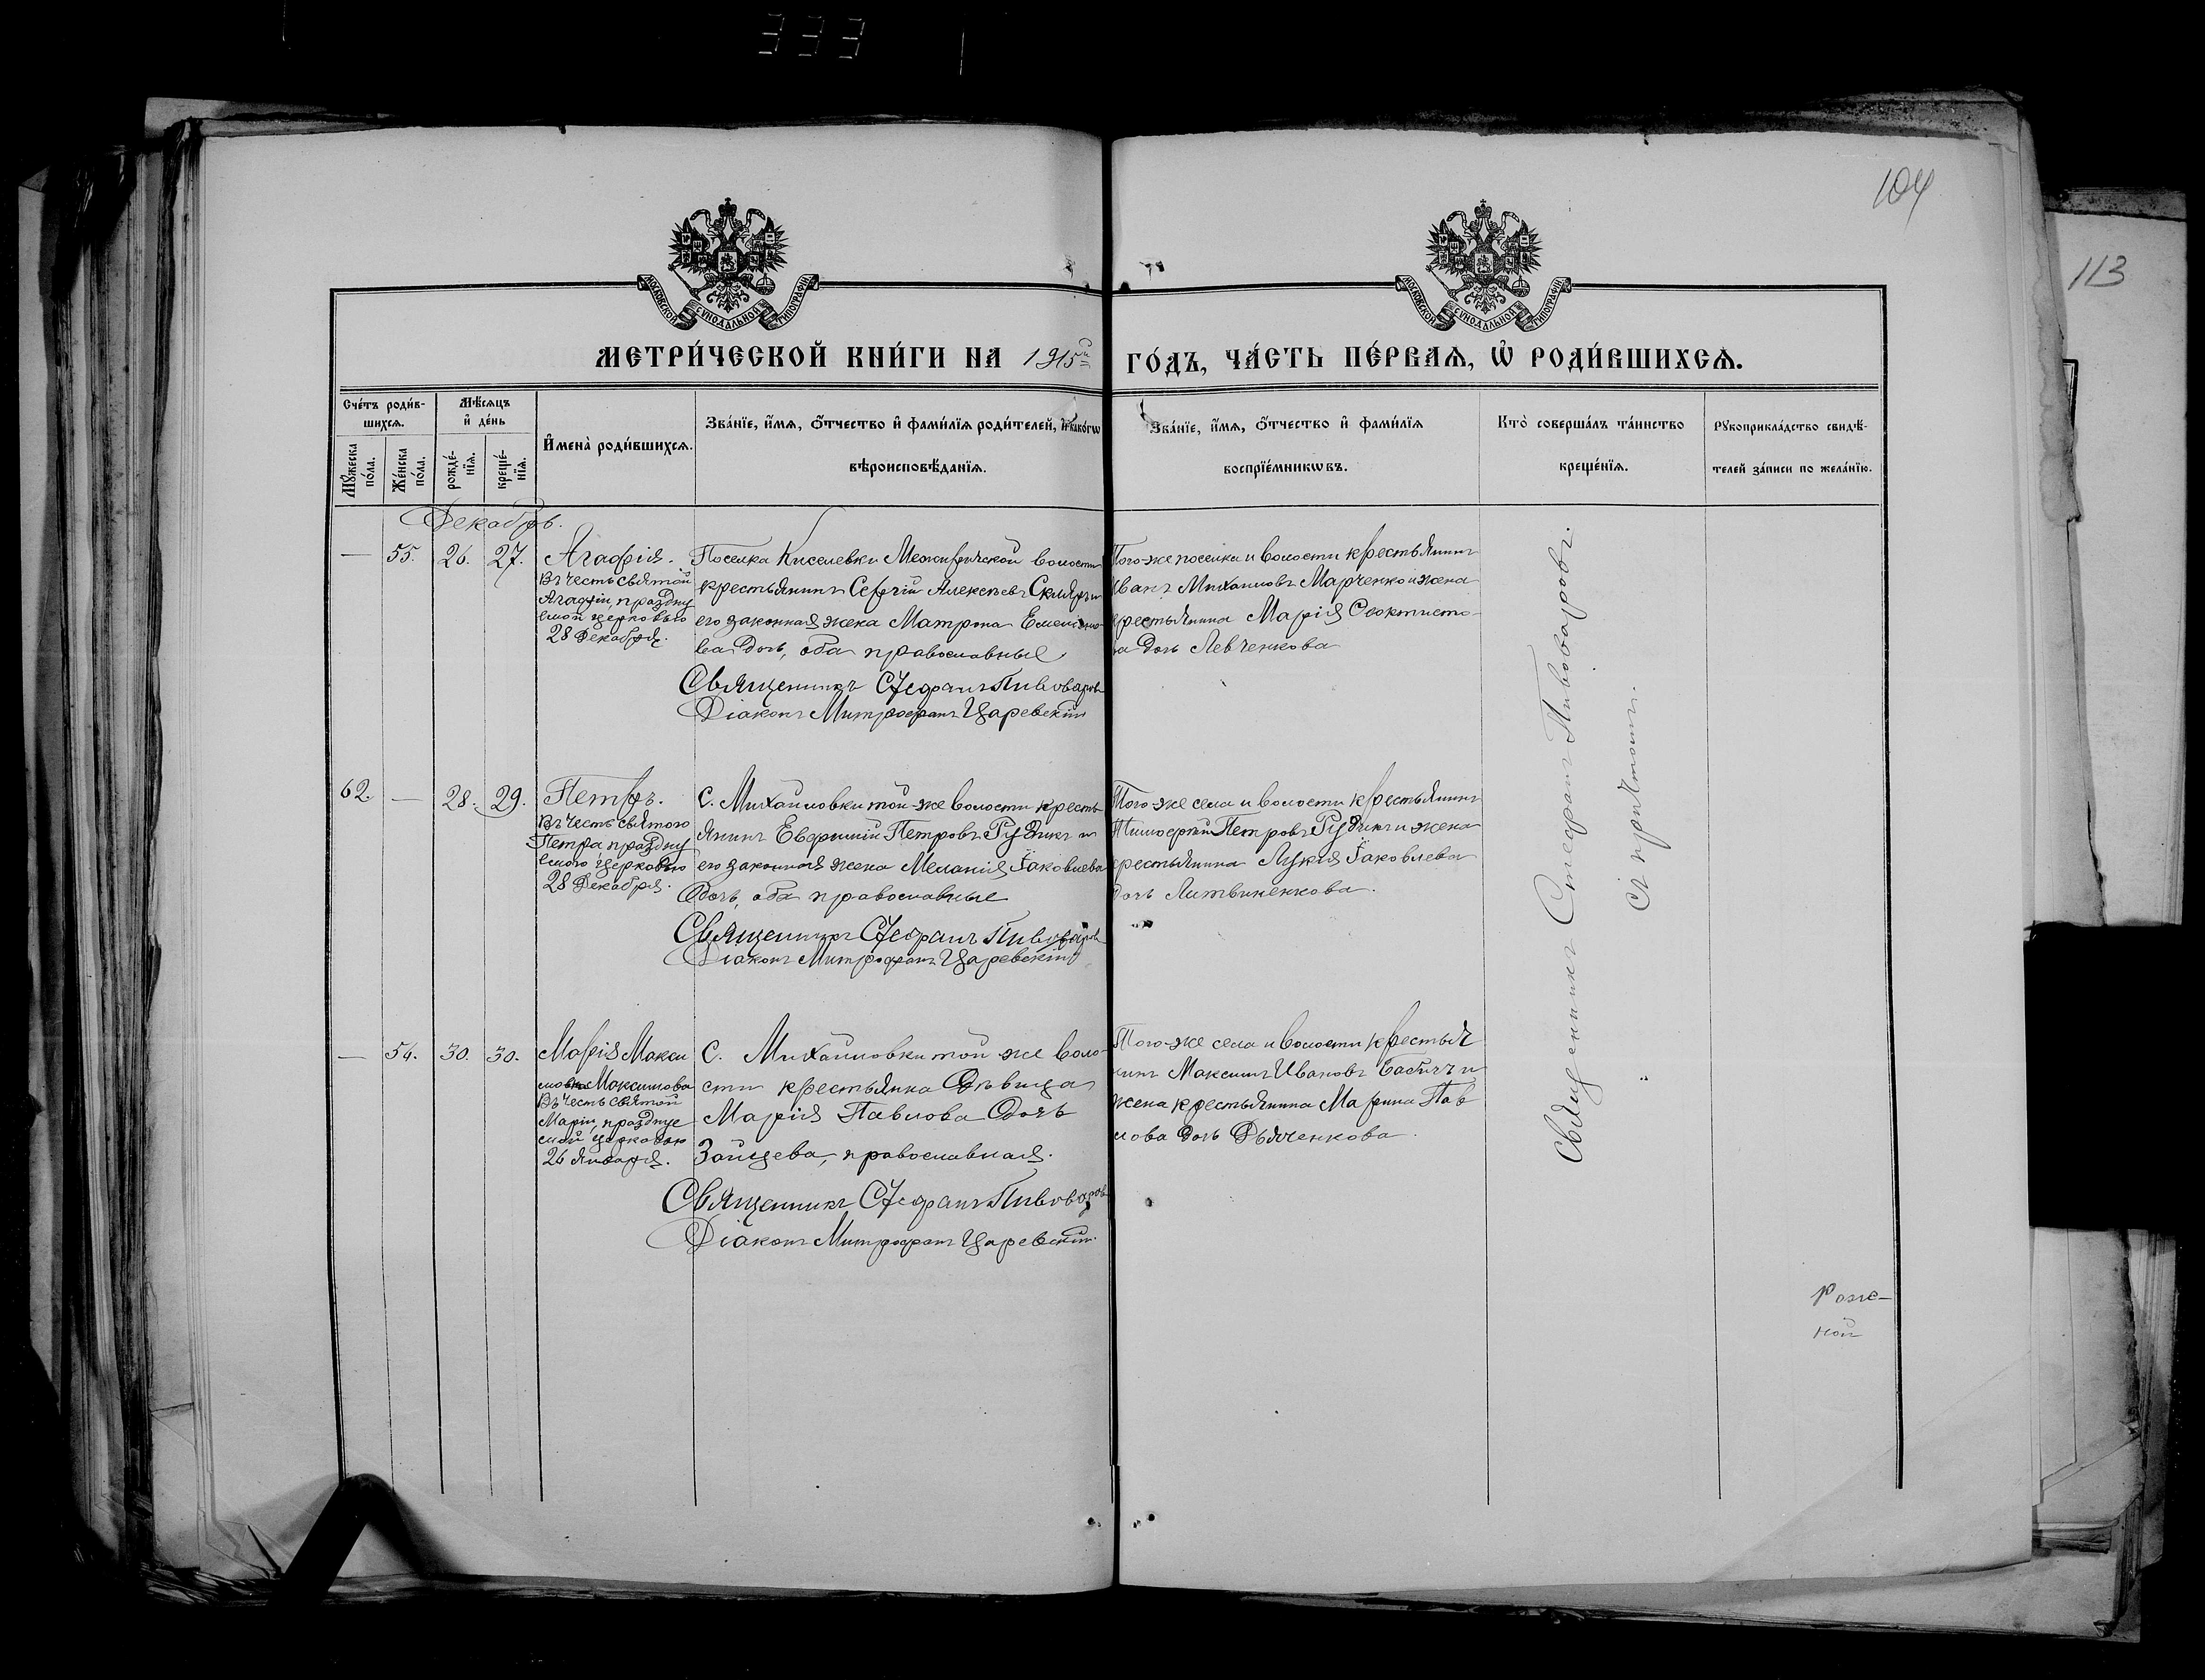 333
104
113
МОСКОВСКОЙ СѴНОДАЛЬНОЙ ТИПОГРАФІИ
МОСКОВСКОЙ СѴНОДАЛЬНОЙ ТИПОГРАФІИ
МЕТРИ́ЧЕСКОЙ КНИ́ГИ НА 1915й ГО́ДЪ, ЧА́СТЬ ПЕ́РВАЯ, Ѡ҆ РОДИ́ВШИХСЯ.
Сче́тъ роди́в-
шихся.
Мꙋ́жеска по́ла.
Же́нска по́ла.
Мѣ́сяцъ
и҆ де́нь
рожде́-
нїя.
креще́-
нїя.
И҆мена̀ роди́вшихся.
Зва́нїе, и҆́мя, ѻ҆́тчество и҆ фами́лїя роди́телей, и҆ како́гѡ
вѣроисповѣ́данїя.
Зва́нїе, и҆́мя, ѻ҆́тчество и҆ фами́лїя
воспрїе́мникѡвъ.
Кто̀ соверша́лъ та́инство
креще́нїя.
Рꙋкоприкла́дство свидѣ́-
телей за́писи по жела́нїю.
Декабрь.
— 55. 26. 27. Агафія.
Въ честь святой
Агафіи, праздну
емой церковью
28 Декабря.
Поселка Киселевки Межирической волости
крестьянинъ Сергій Алексѣевъ Скляръ и
его законная жена Матрона Емельяно
ва дочь, оба православные
Священникъ Стефанъ Пивоваров
Діаконъ Митрофанъ Царевскій
Того-же поселка и волости крестьянинъ
Иванъ Михаиловъ Марченко и жена
крестьянина Марія Феоктисто-
ва дочь Левченкова
62. — 28. 29. Петръ.
Въ честь святого
Петра, праздну
емого церковью
28 Декабря.
С. Михайловки той-же волости кресть
янинъ Евфимій Петровъ Рудикъ и
его законная жена Меланія Іаковлева
дочь, оба православные
Священникъ Стефанъ Пивоваров
Діаконъ Митрофанъ Царевскій
Того-же села и волости крестьянинъ
Тимофей Петровъ Рудикъ и жена
крестьянина Лукія Іаковлева
дочь Литвиненкова.
— 54. 30. 30. Марія Макси
мовна Максимова
Въ честь святой
Маріи, праздвуе
мой церковью
26 Января.
С. Михайловки той же воло-
сти крестьянка Дѣвица
Марія Павлова дочь
Зайцева, православная.
Священникъ Стефанъ Пивоваров
Діаконъ Митрофанъ Царевскій
Того-же села и волости крестья
нинъ Максимъ Ивановъ Бабичъ и
жена крестьянина Марина Пав
лова дочь Дьяченкова.
Священникъ Стефанъ Пивоваровъ.
Съ причтомъ.